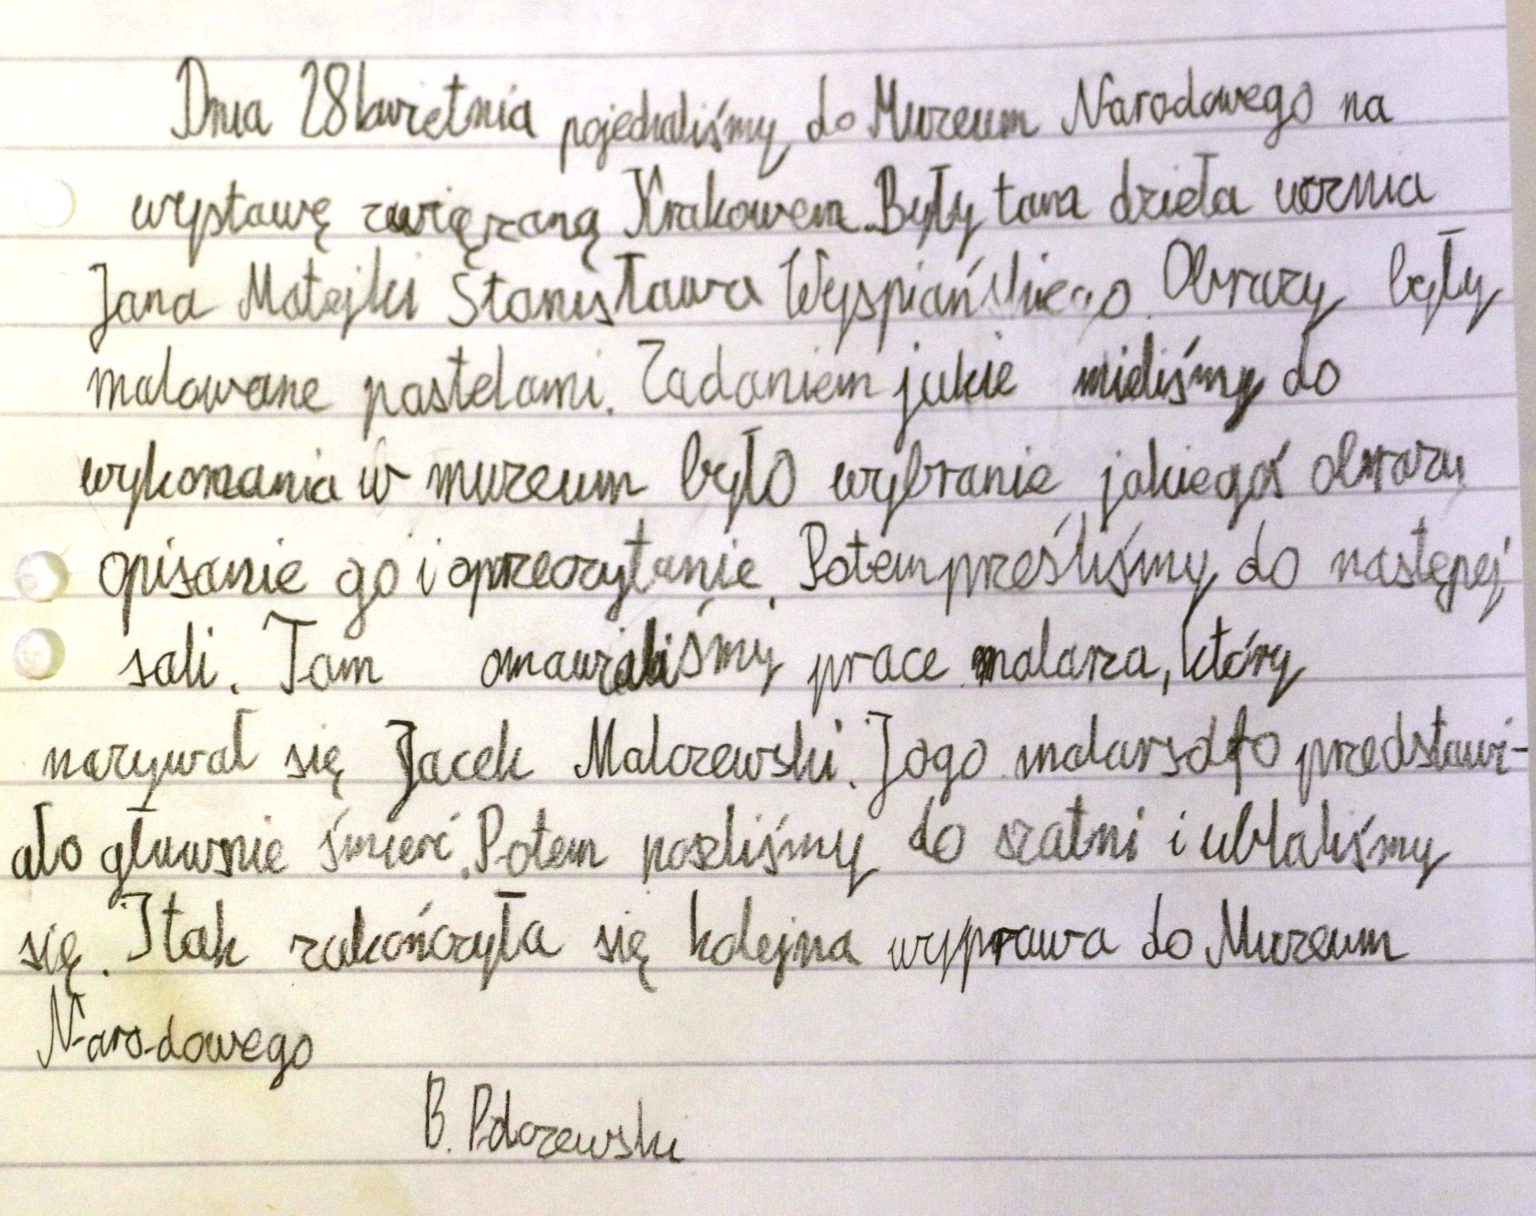 Dnia 28 kwietnia pojechaliśmy do Muzeum Narodowego na
wystawę związaną Krakowem. Były tam dzieła ucznia
Jana Matejki Stanisława Wyspiańskiego. Obrazy były
malowane pastelami. Zadaniem jakie mieliśmy do
wykonania w muzeum było wybranie jakiegoś obrazu
opisanie go i oprzeczytanie. Potem prześliśmy do następej
sali. Tam omawialiśmy prace malarza, który
nazywał się Jacek Malczewski. Jego malarsdło przedstawi-
ało głuwnie śmierć. Potem poszliśmy do szatni i ubłaliśmy
się. I tak zakończyła się kolejna wyprawa do Muzeum
Narodowego
B.